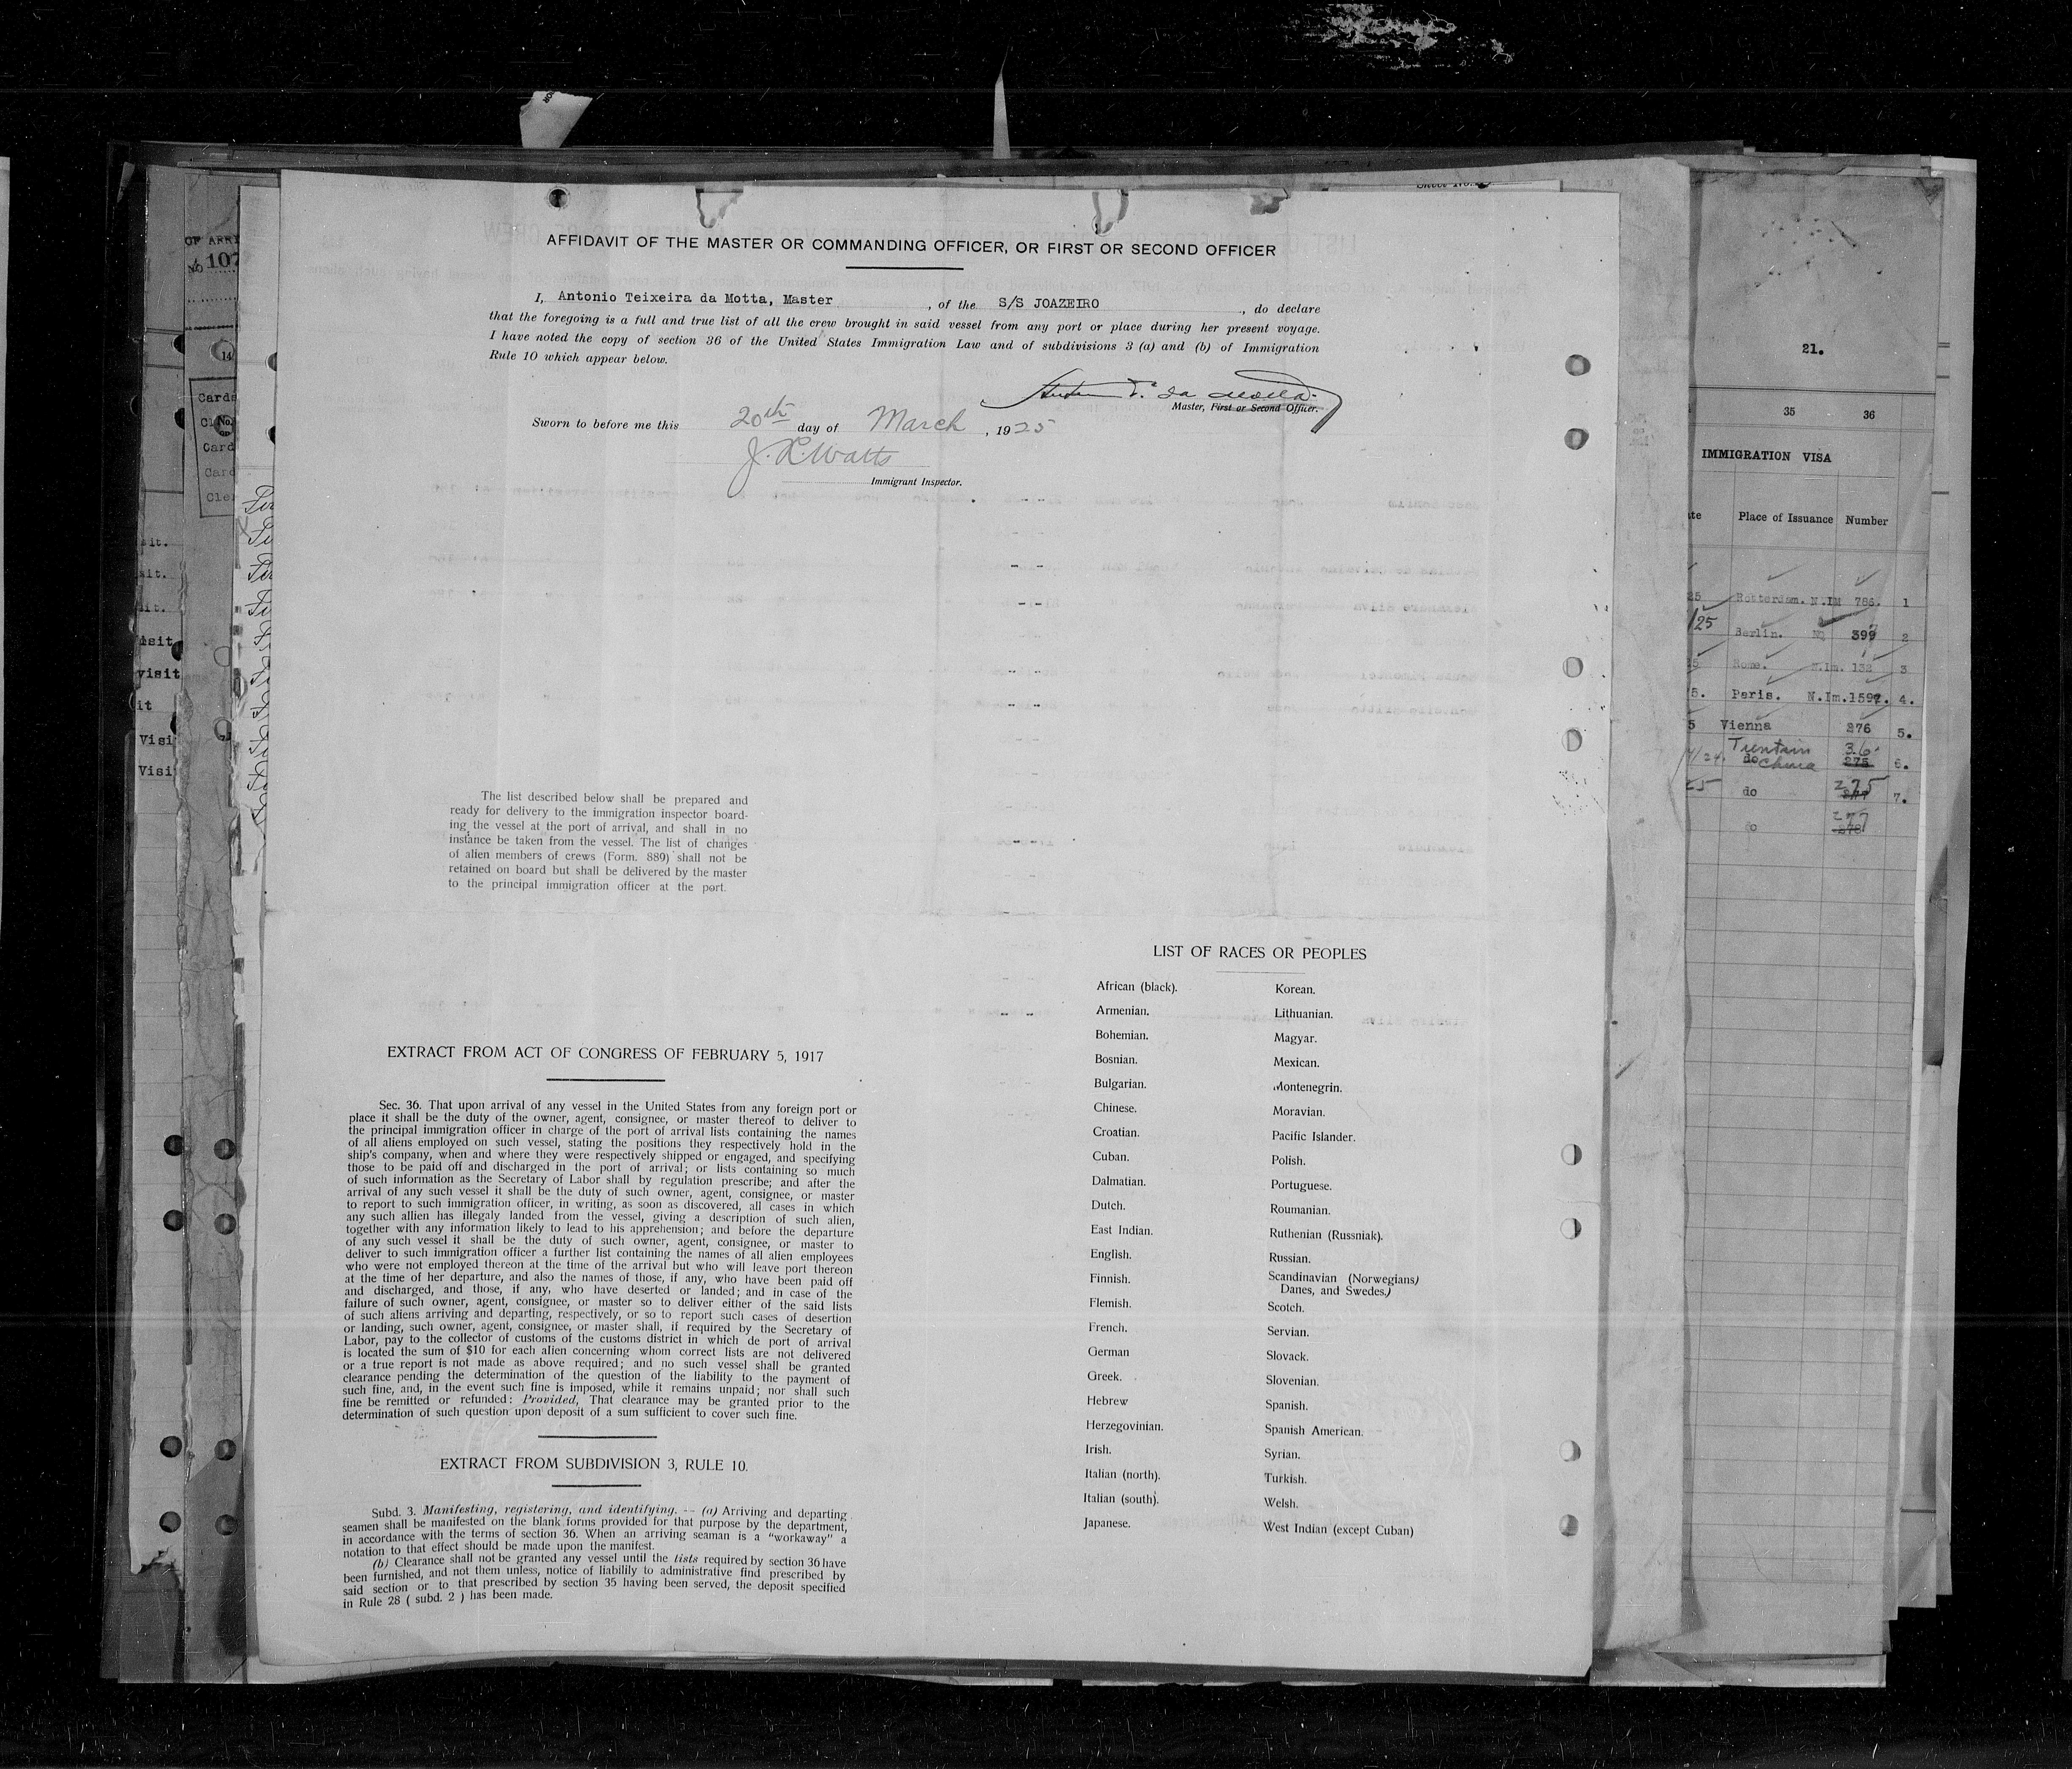 AFFIDAVIT OF THE MASTER OR COMMANDING OFFICER, OR FIRST OR SECOND OFFICER
I, Antonio Teixeira da Motta, Master, of the S/S JOAZEIRO, do declare
that the foregoing is a full and true list of all the crew brought in said vessel from any port or place during her present voyage.
I have noted the copy of section 36 of the United States Immigration Law and of subdivisions 3 (a) and (b) of Immigration
Rule 10 which appear below.
Master, First or Second Officer.
Sworn to before me this 20th day of March, 1925
J. L. Watts
Immigrant Inspector.
The list described below shall be prepared and
ready for delivery to the immigration inspector board-
ing the vessel at the port of arrival, and shall in no
instance be taken from the vessel. The list of changes
of alien members of crews (Form. 889) shall not be
retained on board but shall be delivered by the master
to the principal immigration officer at the port.
EXTRACT FROM ACT OF CONGRESS OF FEBRUARY 5, 1917
Sec. 36. That upon arrival of any vessel in the United States from any foreign port or
place it shall be the duty of the owner, agent, consignee, or master thereof to deliver to
the principal immigration officer in charge of the port of arrival lists containing the names
of all aliens employed on such vessel, stating the positions they respectively hold in the
ship's company, when and where they were respectively shipped or engaged, and specifying
those to be paid off and discharged in the port of arrival; or lists containing so much
of such information as the Secretary of Labor shall by regulation prescribe; and after the
arrival of any such vessel it shall be the duty of such owner, agent, consignee, or master
to report to such immigration officer, in writing, as soon as discovered, all cases in which
any such allien has illegaly landed from the vessel, giving a description of such alien,
together with any information likely to lead to his apprehension; and before the departure
of any such vessel it shall be the duty of such owner, agent, consignee, or master to
deliver to such immigration officer a further list containing the names of all alien employees
who were not employed thereon at the time of the arrival but who will leave port thereon
at the time of her departure, and also the names of those, if any, who have been paid off
and discharged, and those, if any, who have deserted or landed; and in case of the
failure of such owner, agent, consignee, or master so to deliver either of the said lists
of such aliens arriving and departing, respectively, or so to report such cases of desertion
or landing, such owner, agent, consignee, or master shall, if required by the Secretary of
Labor, pay to the collector of customs of the customs district in which de port of arrival
is located the sum of $10 for each alien concerning whom correct lists are not delivered
or a true report is not made as above required; and no such vessel shall be granted
clearance pending the determination of the question of the liability to the payment of
such fine, and, in the event such fine is imposed, while it remains unpaid; nor shall such
fine be remitted or refunded: Provided, That clearance may be granted prior to the
determination of such question upon deposit of a sum sufficient to cover such fine.
EXTRACT FROM SUBDIVISION 3, RULE 10.
Subd. 3. Manifesting, registering, and identifying. -- (a) Arriving and departing
seamen shall be manifested on the blank forms provided for that purpose by the department,
in accordance with the terms of section 36. When an arriving seaman is a "workaway" a
notation to that effect should be made upon the manifest.
(b) Clearance shall not be granted any vessel until the lists required by section 36 have
been furnished, and not them unless, notice of liabilily to administrative find prescribed by
said section or to that prescribed by section 35 having been served, the deposit specified
in Rule 28 ( subd. 2 ) has been made.
LIST OF RACES OR PEOPLES
African (black).
Armenian.
Bohemian.
Bosnian.
Bulgarian.
Chinese.
Croatian.
Cuban.
Dalmatian.
Dutch.
East Indian.
English.
Finnish.
Flemish.
French.
German
Greek.
Hebrew
Herzegovinian.
Irish.
Italian (north).
Italian (south).
Japanese.
Korean.
Lithuanian.
Magyar.
Mexican.
Montenegrin.
Moravian.
Pacific Islander.
Polish.
Portuguese.
Roumanian.
Ruthenian (Russniak).
Russian.
Scandinavian (Norwegians)
Danes, and Swedes.)
Scotch.
Servian.
Slovack.
Slovenian.
Spanish.
Spanish American.
Syrian.
Turkish.
Welsh.
West Indian (except Cuban)
21.
35 36
IMMIGRATION VISA
Place of Issuance Number
Rotterdam. N.IM 786. 1
Berlin. 2
Rome. N.Im. 132 3
Paris. N.Im. 4.
Vienna 276 5.
China 36 6.
do 275 7.
277